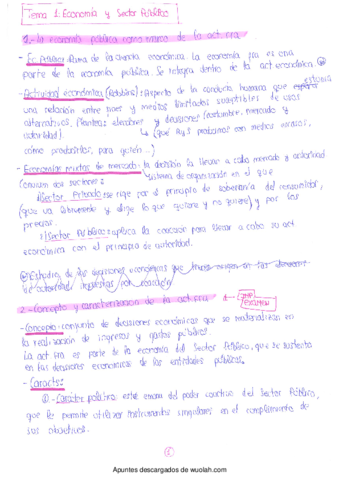 Tema 1: Economía y Sector Público
1.- la economía pública como marco de la act fra
- Ec. Pública: Rama de la ciencia económica. la economía fra es una
parte de la economía pública. Se integra dentro de la act económica.
- Actividad económica (Robbins): Aspecto de la conducta humana que estudia
una relación entre fines y medios limitados susceptibles de usos
alternativos. Plantea: elecciones y decisiones (costumbre, mercado y
autoridad).
(qué bys producimos con medios escasos,
cómo producirlos, para quién...)
- Economías mixtas de mercado: la decisión la llevan a cabo mercado y autoridad
Sistema de organización en el que
2 sectores:
1) Sector Privado: se rige por el principio de soberanía del consumidor,
(que va libremente y elige lo que quiere y no quiere) y por los
precios.
2) Sector Público: aplica la coacción para llevar a cabo su act
económica con el principio de autoridad.
Estudia de las
de autoridad por coacción
2.- Concepto y caracterización de la act fra
EXAMEN
- Concepto: conjunto de decisiones económicas que se materializan en
la realización de ingresos y gastos públicos.
La act fra es parte de la economía del Sector Público, que se sustenta
en las decisiones económicas de las entidades públicas.
- Caracts:
① - Carácter político: este emana del poder coactivo del Sector Público,
que le permite utilizar instrumentos singulares en el cumplimiento de
sus objetivos.
①
Apuntes descargados de wuolah.com